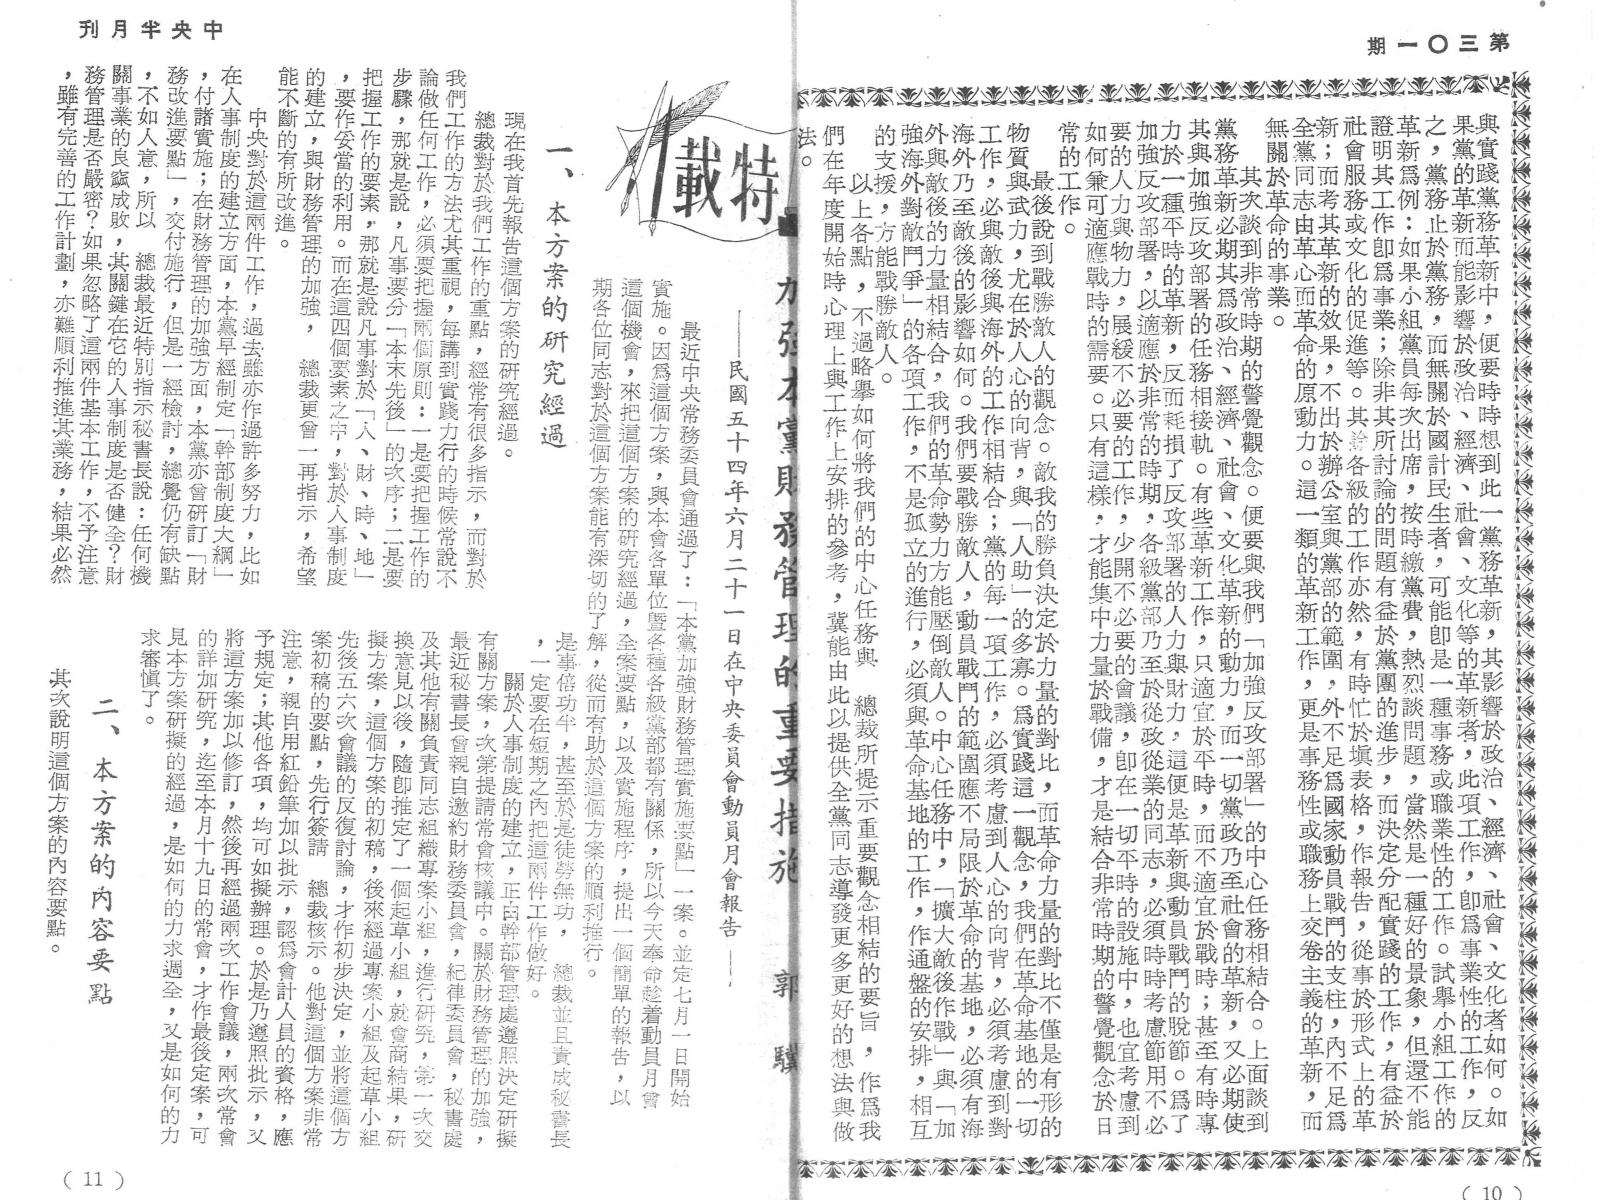 第三〇一期
與實踐黨務革新中，便要時時想到此一黨務革新，其影響於政治、經濟、社會、文化者如何。如
果黨的革新而能影響於政治、經濟、社會、文化等的革新者，此項工作，卽爲事業性的工作，反
之，黨務止於黨務，而無關於國計民生者，可能卽是一種事務或職業性的工作。試舉小組工作的
革新爲例：如果小組黨員每次出席，按時繳黨費，熱烈談問題，當然是一種好的景象，但還不能
證明其工作卽爲事業；除非其所討論的問題有益於黨團的進步，而決定分配實踐的工作，有益於
社會服務或文化的促進等。其餘各級的工作亦然，有時忙於塡表格，作報告，從事於形式上的革
新；而考其革新的效果，不出於辦公室與黨部的範圍，外不足爲國家動員戰鬥的支柱，內不足爲
全黨同志由革心而革命的原動力。這一類的革新工作，更是事務性或職務上交卷主義的革新，而
無關於革命的事業。
其次談到非常時期的警覺觀念。便要與我們「加強反攻部署」的中心任務相結合。上面談到
黨務革新必期其爲政治、經濟、社會、文化革新的動力，而一切黨政乃至社會的革新，又必期使
其與加強反攻部署的任務相接軌。有些革新工作，只適宜於平時，而不適宜於戰時；甚至有時專
力於一種平時的革新，反而耗損了反攻部署的人力與財力，這便是革新與動員戰鬥的脫節。爲了
加強反攻部署，以適應於非常的時期，各級黨部乃至於從政從業的同志，必須時時考慮節用不必
要的人力與物力，展緩不必要的工作，少開不必要的會議，卽在一切平時的設施中，也宜考慮到
如何兼可適應戰時的需要。只有這樣，才能集中力量於戰備，才是結合非常時期的警覺觀念於日
常的工作。
最後說到戰勝敵人的觀念。敵我的勝負決定於力量的對比，而革命力量的對比不僅是有形的
物質與武力，尤在於人心的向背，與「人助」的多寡。爲實踐這一觀念，我們在革命基地的一切
工作，必與敵後與海外的工作相結合；黨的每一項工作，必須考慮到人心的向背，必須考慮到對
海外乃至敵後的影響如何。我們要戰勝敵人，動員戰鬥的範圍應不局限於革命的基地，必須有海
外與敵後的力量相結合，我們的革命勢力方能壓倒敵人。中心任務中，「擴大敵後作戰」與「加
強海外對敵鬥爭」的各項工作，不是孤立的進行，必須與革命基地的工作，作通盤的安排，相互
的支援，方能戰勝敵人。
以上各點，不過略舉如何將我們的中心任務與　總裁所提示重要觀念相結的要旨，作爲我
們在年度開始時心理上與工作上安排的參考，冀能由此以提供全黨同志導發更多更好的想法與做
法。
（10）
中央半月刊
特載
加強本黨財務管理的重要措施　郭驥
——民國五十四年六月二十一日在中央委員會動員月會報告——
最近中央常務委員會通過了：「本黨加強財務管理實施要點」一案。並定七月一日開始
實施。因爲這個方案，與本會各單位暨各種各級黨部都有關係，所以今天奉命趁着動員月會
這個機會，來把這個方案的研究經過，全案要點，以及實施程序，提出一個簡單的報告，以
期各位同志對於這個方案能有深切的了解，從而有助於這個方案的順利推行。
一、本方案的研究經過
現在我首先報告這個方案的研究經過。
總裁對於我們工作的重點，經常有很多指示，而對於
我們工作的方法尤其重視，每講到實踐力行的時候常說不
論做任何工作，必須要把握兩個原則：一是要把握工作的
步驟，那就是說，凡事要分「本末先後」的次序；二是要
把握工作的要素，那就是說凡事對於「人、財、時、地」
，要作妥當的利用。而在這四個要素之中，對於人事制度
的建立，與財務管理的加強，　總裁更會一再指示，希望
能不斷的有所改進。
中央對於這兩件工作，過去雖亦作過許多努力，比如
在人事制度的建立方面，本黨早經制定「幹部制度大綱」
，付諸實施；在財務管理的加強方面，本黨亦曾研訂「財
務改進要點」，交付施行，但是一經檢討，總覺仍有缺點
，不如人意，所以　總裁最近特別指示秘書長說：任何機
關事業的良窳成敗，其關鍵在它的人事制度是否健全？財
務管理是否嚴密？如果忽略了這兩件基本工作，不予注意
，雖有完善的工作計劃，亦難順利推進其業務，結果必然
是事倍功半，甚至於是徒勞無功，　總裁並且責成秘書長
，一定要在短期之內把這兩件工作做好。
關於人事制度的建立，正由幹部管理處遵照決定研擬
有關方案，次第提請常會核議中。關於財務管理的加強，
最近秘書長曾親自邀約財務委員會，紀律委員會，秘書處
及其他有關負責同志組織專案小組，進行研究，第一次交
換意見以後，隨卽推定了一個起草小組，就會商結果，研
擬方案，這個方案的初稿，後來經過專案小組及起草小組
先後五六次會議的反復討論，才作初步決定，並將這個方
案初稿的要點，先行簽請　總裁核示。他對這個方案非常
注意，親自用紅鉛筆加以批示，認爲會計人員的資格，應
予規定；其他各項，均可如擬辦理。於是乃遵照批示，又
將這方案加以修訂，然後再經過兩次工作會議，兩次常會
的詳加研究，迄至本月十九日的常會，才作最後定案，可
見本方案研擬的經過，是如何的力求週全，又是如何的力
求審愼了。
二、本方案的內容要點
其次說明這個方案的內容要點。
（11）